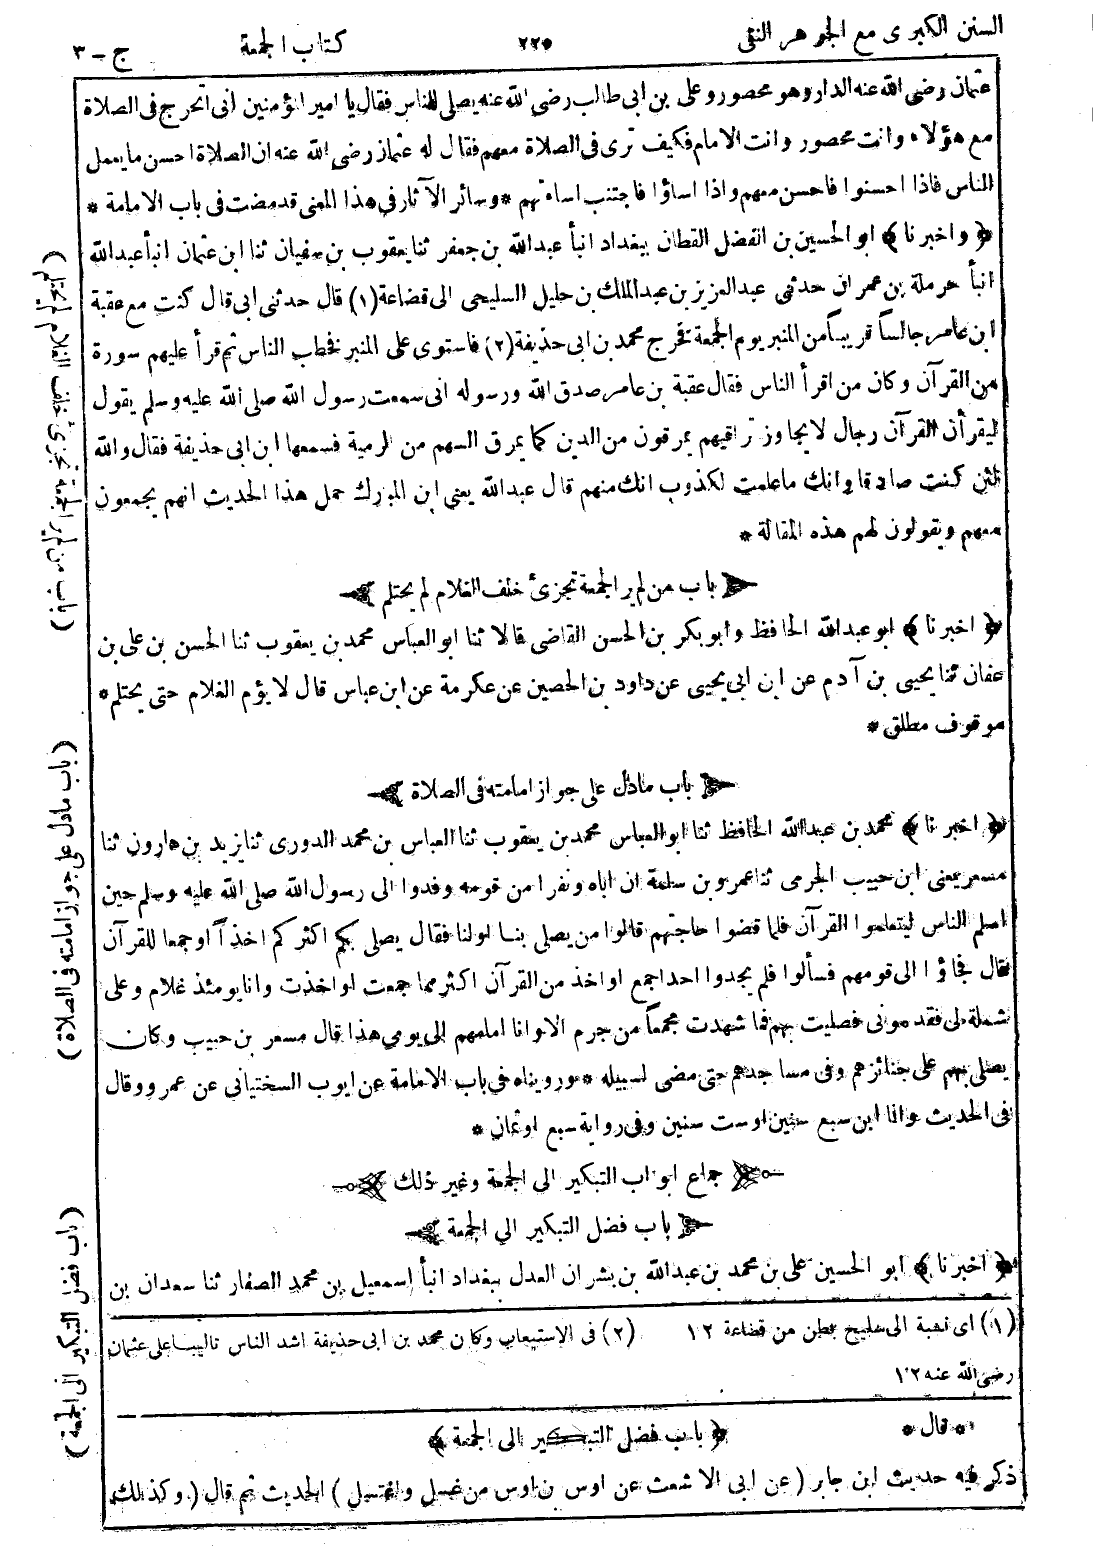 السنن الكبرى مع الجوهر النقى
٢٢٥
كتاب الجمعة
ج - ٣
عثمان رضى الله عنه الدار وهو محصور وعلى بن ابى طالب رضى الله عنه يصلى للناس فقال يا امير المؤمنين انى اتحرج فى الصلاة
مع هؤلاء وانت محصور وانت الامام فكيف ترى فى الصلاة معهم فقال له عثمان رضى الله عنه ان الصلاة احسن ما يعمل
الناس فاذا احسنوا فاحسن معهم واذا اساؤا فاجتنب اساءتهم * وسائر الآثار فى هذا المعنى قد مضت فى باب الامامة *
﴿ واخبرنا ﴾ ابو الحسين بن الفضل القطان ببغداد انبأ عبدالله بن جعفر ثنا يعقوب بن سفيان ثنا ابن عثمان انبأ عبدالله
انبأ حرملة بن عمران حدثنى عبد العزيز بن عبد الملك بن حليل السليحى الى قضاعة (١) قال حدثنى ابى قال كنت مع عقبة
ابن عامر جالساً قريباً من المنبر يوم الجمعة فخرج محمد بن ابى حذيفة (٢) فاستوى على المنبر فخطب الناس ثم قرأ عليهم سورة
من القرآن وكان من اقرأ الناس فقال عقبة بن عامر صدق الله ورسوله انى سمعت رسول الله صلى الله عليه وسلم يقول
ليقرأن القرآن رجال لا يجاوز تراقيهم يمرقون من الدين كما يمرق السهم من الرمية فسمعها ابن ابى حذيفة فقال والله
لئن كنت صادقا وانك ما علمت لكذوب انك منهم قال عبدالله يعنى ابن المبارك حمل هذا الحديث انهم يجمعون
معهم ويقولون لهم هذه المقالة *
باب من لم ير الجمعة تجزئ خلف الغلام لم يحتلم
﴿ اخبرنا ﴾ ابو عبدالله الحافظ وابو بكر بن الحسن القاضى قالا ثنا ابو العباس محمد بن يعقوب ثنا الحسن بن على بن
عفان ثنا يحيى بن آدم عن ابن ابى يحيى عن داود بن الحصين عن عكرمة عن ابن عباس قال لا يؤم الغلام حتى يحتلم *
موقوف مطلق *
باب ما دل على جواز امامته فى الصلاة
﴿ اخبرنا ﴾ محمد بن عبدالله الحافظ ثنا ابو العباس محمد بن يعقوب ثنا العباس بن محمد الدورى ثنا يزيد بن هارون ثنا
مسعر يعنى ابن حبيب الجرمى ثنا عمرو بن سلمة ان اباه ونفرا من قومه وفدوا الى رسول الله صلى الله عليه وسلم حين
اسلم الناس ليتعلموا القرآن فلما قضوا حاجتهم قالوا من يصلى بنا او لنا فقال يصلى بكم اكثركم اخذاً او جمعا للقرآن
قال فجاؤا الى قومهم فسألوا فلم يجدوا احدا جمع او اخذ من القرآن اكثر مما جمعت او اخذت وانا يومئذ غلام وعلى
شملة لى فقدمونى فصليت بهم فما شهدت مجمعاً من جرم الا وانا امامهم الى يومى هذا قال مسعر بن حبيب وكان
يصلى بهم على جنائزهم وفى مساجدهم حتى مضى لسبيله * ورويناه فى باب الامامة عن ايوب السختيانى عن عمرو وقال
فى الحديث وانا ابن سبع سنين او ست سنين وفى رواية سبع او ثمان *
جماع ابواب التبكير الى الجمعة وغير ذلك
باب فضل التبكير الى الجمعة
﴿ اخبرنا ﴾ ابو الحسين على بن محمد بن عبدالله بن بشران العدل ببغداد انبأ اسمعيل بن محمد الصفار ثنا سعدان بن
(١) اى نسبة الى سليح بطن من قضاعة ١٢ (٢) فى الاستيعاب وكان محمد بن ابى حذيفة اشد الناس تاليبا على عثمان
رضى الله عنه ١٢
* قال *
﴿ باب فضل التبكير الى الجمعة ﴾
ذكر فيه حديث ابن جابر ( عن ابى الاشعث عن اوس بن اوس من غسل واغتسل ) الحديث ثم قال ( وكذلك
(باب ما دل على جواز امامته فى الصلاة)
(باب فضل التبكير الى الجمعة)